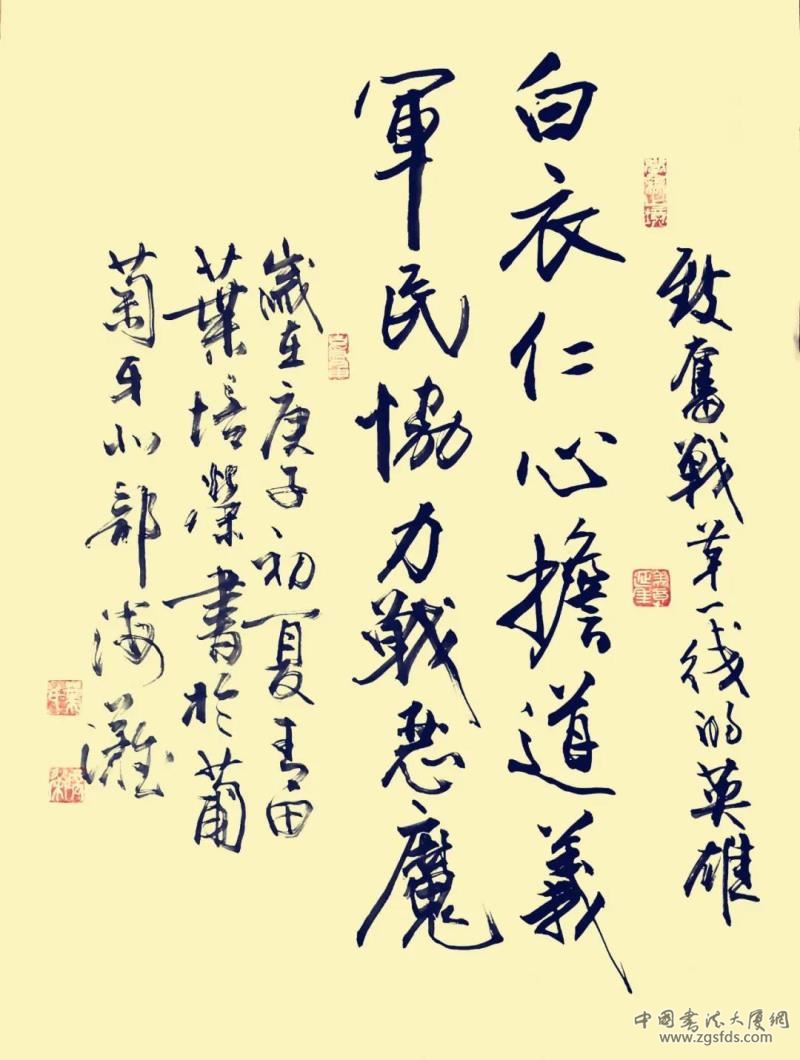 致奮戰第一綫的英雄
白衣仁心擔道義
軍民協力戰惡魔
歲在庚子初夏青田
葉培榮書於葡
萄牙北部海灘
中國書法大廈網
www.zgsfds.com